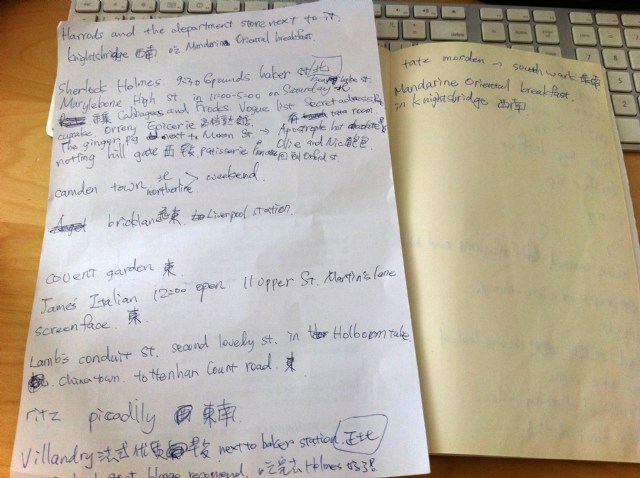 Harrods and the department store next to it.
knightsbridge 西南 吃 Mandarin Oriental breakfast.
Sherlock Holmes 9:30 6pounds baker
Marylebone High st. in 11:00-5:00 on Sunday 北
Cabbages and Frocks Vogue list Secret
cupcake. Orrery Epicerie tea room.
The ginger pig next to Moon St → Apostrophe hot
notting hill gate 西 patisserie Oxford st
Olive and
camden town 北 northerline > weekend.
bricklane 東. Liverpool station.
covent garden 東
James Italian 12:00 open 11 Upper St. Martin's lane
screenface. 東
Lamb's conduit St. second lovely st. in Holborn
chinatown. tottenhan Court road. 東
ritz picadilly 東南
Villandry 法式优质 早餐 next to baker station. 正北
recommend. 吃完去Holmes
tate morden → southwark 東南
Mandarine Oriental breakfast.
in knightsbridge 西南